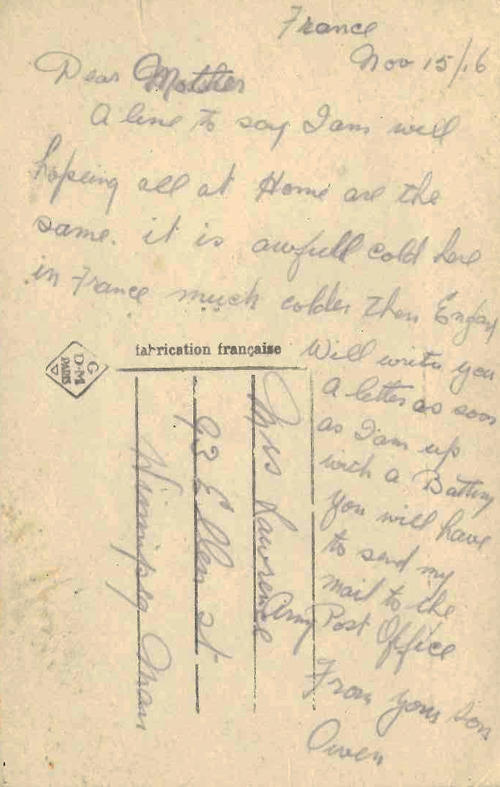 France
Nov 15/16
Dear Mother
A line to say I am well
hopeing all at Home are the
same. it is awfull cold here
in France much colder then England
Will write you
a letter as soon
as I am up
with a Battery
you will have
to send my
mail to the
Army Post Office
From your Son
Owen
fabrication française
G
D·M
PARIS
Mrs Lawrence
93 Ellen st
Winnipeg Man